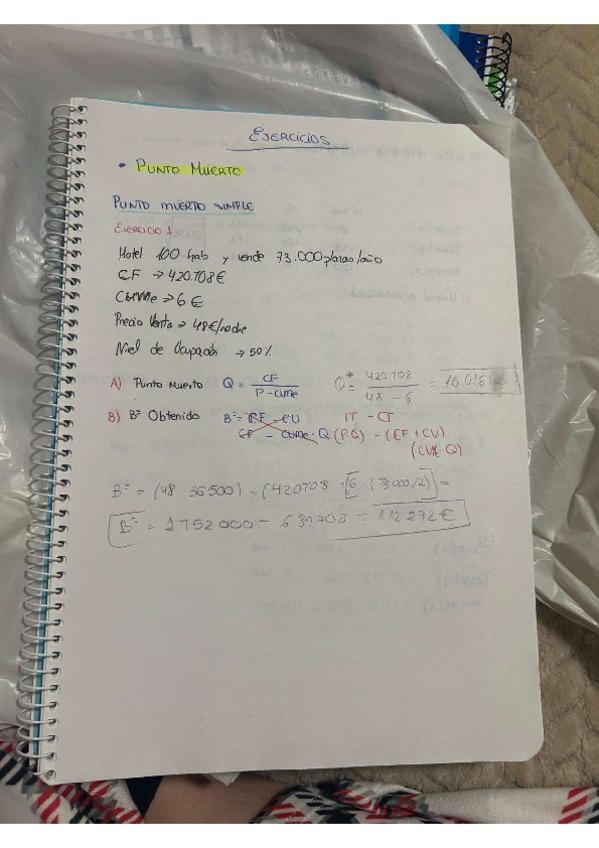 EJERCICIOS
• PUNTO MUERTO
PUNTO MUERTO SIMPLE
EJERCICIO 1
Hotel 100 hab y vende 73.000 plazas/año
CF → 420.708 €
CUVMe → 6 €
Precio Venta → 48 €/noche
Nivel de Ocupación → 50%
A) Punto Muerto Q = CF / P - CVMe Q* = 420708 / 48 - 6 = 10.016
B) Bº Obtenido Bº = CF - CU IT - CT
CF - CVMe · Q (P·Q) - (CF + CV)
(CVMe · Q)
Bº = (48 · 36500) - (420708 + [6 · (73000/2)]) =
Bº = 1752000 - 639708 = 1112292 €